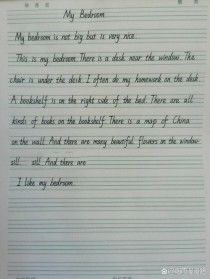 My Bedroom
My bedroom is not big but is very nice.
This is my bedroom. There is a desk near the window. The
chair is under the desk. I often do my homework on the desk.
A bookshelf is on the right side of the bed. There are all
kinds of books on the bookshelf. There is a map of China
on the wall. And there are many beautiful flowers on the window
sill. sill. And there are
I like my bedroom.